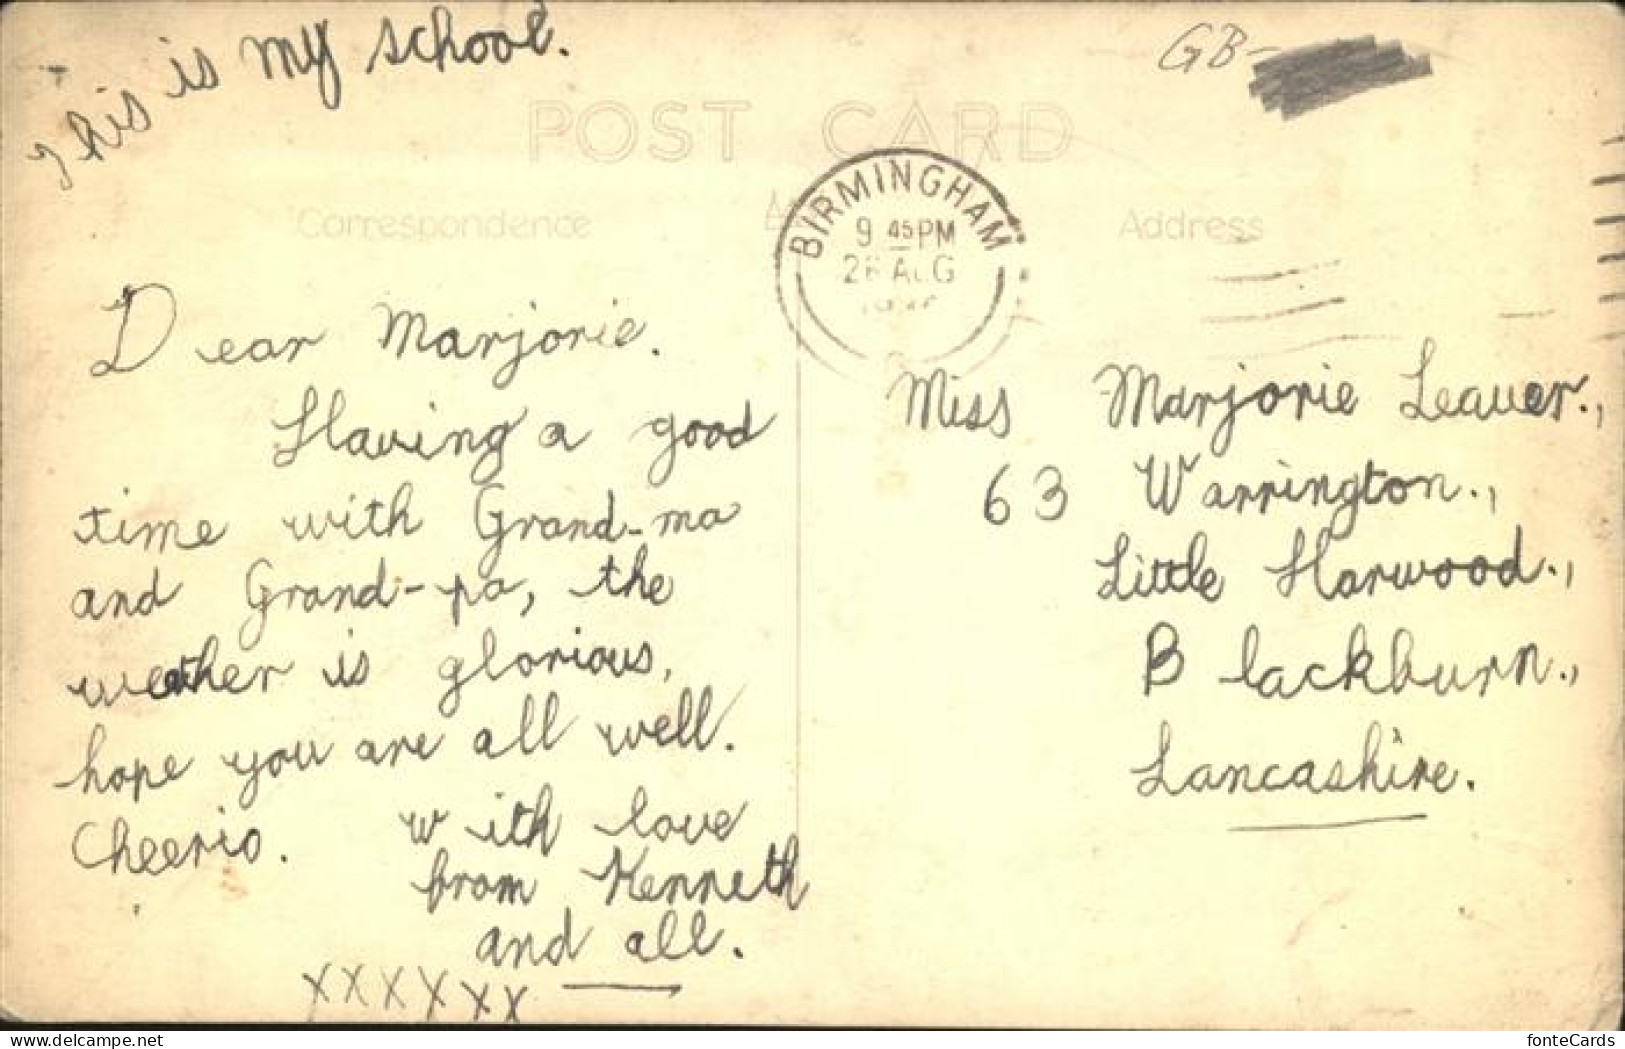 This is my school.
GB-
POST CARD
Correspondence
Address
BIRMINGHAM
9 45 PM
AUG
Dear Marjorie.
Having a good
time with Grand-ma
and Grand-pa, the
weather is glorious,
hope you are all well.
Cheerio. with love
from Kenneth
and all.
xxxxxx
Miss Marjorie Leaver.,
63 Warrington.,
Little Harwood.,
Blackburn.,
Lancashire.
delcampe.net
fonteCards